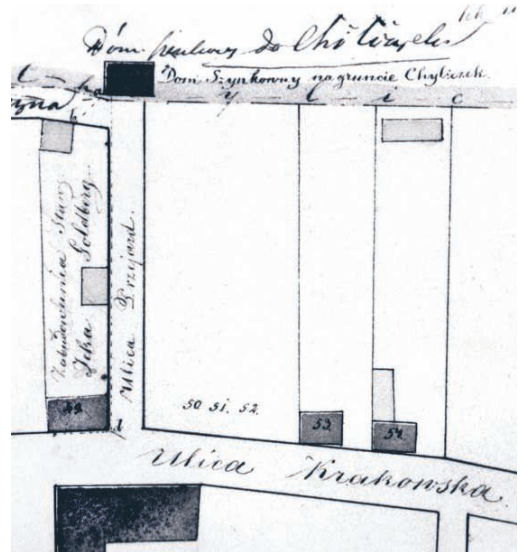 do
Dom Szynkowny na gruncie Chyliczek.
y l i c
Zabudowania Star.
Icka Goldberg
Ulica Przyjazd.
49.
50 51. 52.
53.
54.
Ulica Krakowska.